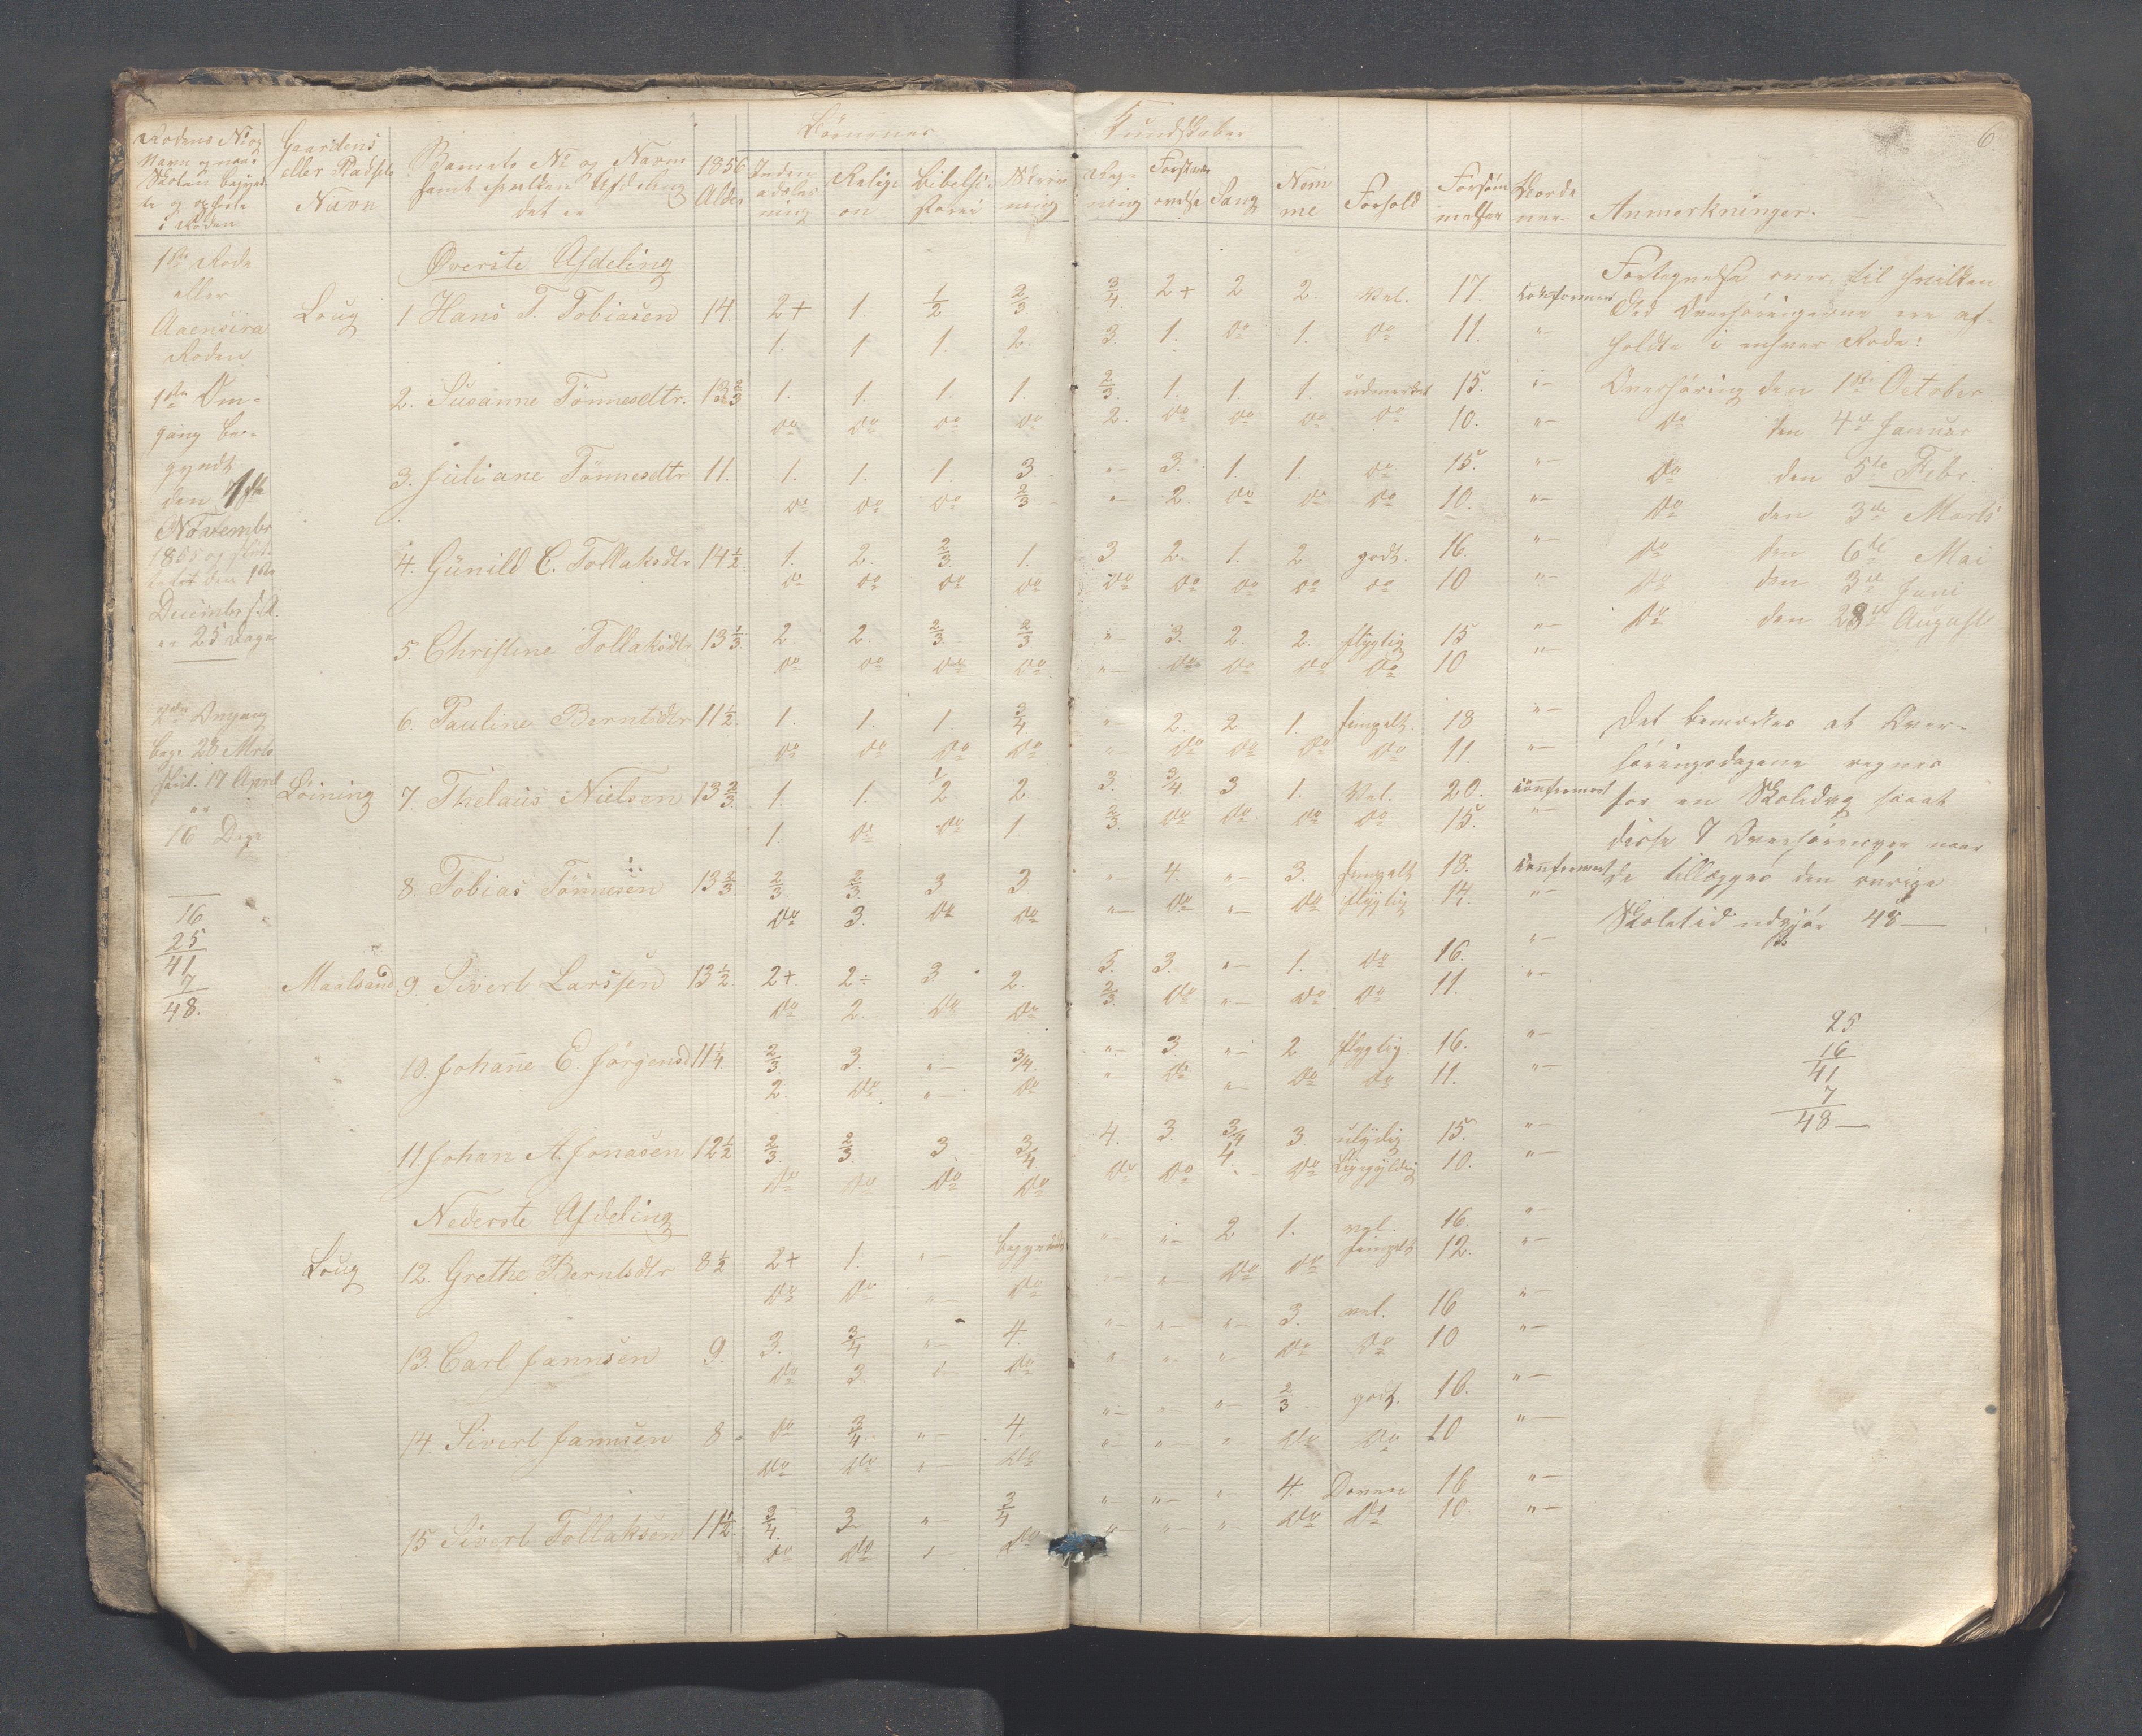 6
Børnenes Kundskaber
Rodens No og Navn og naar Skolen begynd- te og ophørte i Roden
Gaardens eller Pladsens Navn
Barnets No og Navn samt hvilken Afdeling det er
1856 Alder
Inden- adslæs- ning
Religi- on
Bibelhi- storei
Skriv- ning
Reg- ning
Forstands- øvelse
Sang
Nem- me
Forhold
Forsøm- melser
Vorde- ner
Anmerkninger.
1ste Rode
eller
Aaensira
Roden
1ste Om-
gang be-
gyndt
den 1ste
Novembr
1855 og slut-
tet den 1ste
Decembr s.A.
er 25 Dage
2den Omgang
beg. 28 Mrts
slut. 17 April
er
16 Dage
16
25
41
7
48.
Øverste Afdeling
Loug 1 Hans T. Tobiasen 14. 2+ 1. 1/2 2/3 3/4. 2+ 2 2. Vel. 17. Confirmeret
1. 1 1. 2. 3. 1. Do 1. Do 11. "-
2. Susanne Tønnesdtr. 13 2/3 1. 1. 1. 1. 2/3. 1. 1. 1. udmerket 15. "-
Do Do Do Do 2. Do Do Do Do 10. "-
3. Juliane Tønnesdtr 11. 1. 1. 1. 3 "- 3. 1. 1. Do 15. "-
Do Do Do 2/3 "- 2. Do Do Do 10. "-
4. Günild C. Tollaksdtr 14 1/2. 1. 2. 2/3. 1. 3. 2. 1. 2 godt. 16. "-
Do Do Do Do Do Do Do Do Do 10 "-
5. Christine Tollaksdtr 13 1/3. 2. 2. 2/3. 2/3 "- 3. 2. 2. flygtig 15 "-
Do Do Do Do "- Do Do Do Do 10 "-
6. Pauline Berntsdtr 11 1/2. 1. 1. 1. 3/4 "- 2. 2. 1. simpelt 18 "-
Do Do Do Do " Do Do Do Do 11. "-
Løining 7. Thelaus Nielsen 13 2/3. 1. 1. 1/2 2 3. 3/4. 3 1. Vel. 20. Confirmeret
1. Do Do 1 2/3. Do Do Do Do 15. "-
8. Tobias Tønnesen 13 2/3. 2/3. 2/3. 3 3. "- 4. "- 3. simpelt 18. Confirmeret
Do 3. Do Do "- Do "- Do flygtig 14. "-
Maalsand 9. Sivert Larssen 13 1/2. 2+. 2÷ 3 2. 3. 3. "- 1. Do 16. "-
Do 2. Do Do 2/3. Do "- Do Do 11. "-
10. Johane E. Jørgensd 11 1/4 2/3. 3. "- 3/4. "- 3. "- 2 flygtig 16. "-
2. Do. "- Do " Do "- Do Do 11. "-
11. Johan A. Jonasen 12 1/2 2/3. 2/3. 3. 3/4 4. 3. 3/4 3 ulydig 15. "-
Do Do Do Do Do Do 4. Do Ligegyldig 10. "-
Nederste Afdeling
Loug 12. Grethe Berntsdtr 8 1/2 2+ 1. "- begyndt "- "- 2 1. vel. 16. "-
Do Do "- Do "- " Do Do simpelt 12. "-
13. Carl Jannsen 9. 3. 3/4 "- 4. "- "- "- 3. vel. 16 "-
Do 3. " Do " "- " Do Do 10 "-
14. Sivert Jannsen 8 Do 3/4 "- 4. "- "- "- 2/3 godt. 16. "-
Do Do "- Do "- "- " Do Do 10 "-
15. Sivert Tollaksen 11 1/2. 3/4. 3 "- 3/4 "- "- "- 4. Doven 16 "-
Do Do "- Do "- "- " Do Do 10. "-
Fortegnelse over til hvilken
Tid Overhøringerne ere af-
holdte i enhver Rode:
Overhøring den 1ste October
Do den 4de Januar
Do den 5te Febr.
Do den 3de Marts
Do den 6te Mai
Do den 3de Juni
Do den 28de August
Det bemerkes at Over-
høringsdagene regnes
for en Skoledag saaat
disse 7 Overhøringer naar
de tillægges den øvrige
Skoletid udgjør 48 —
25
16
41
7
48 —